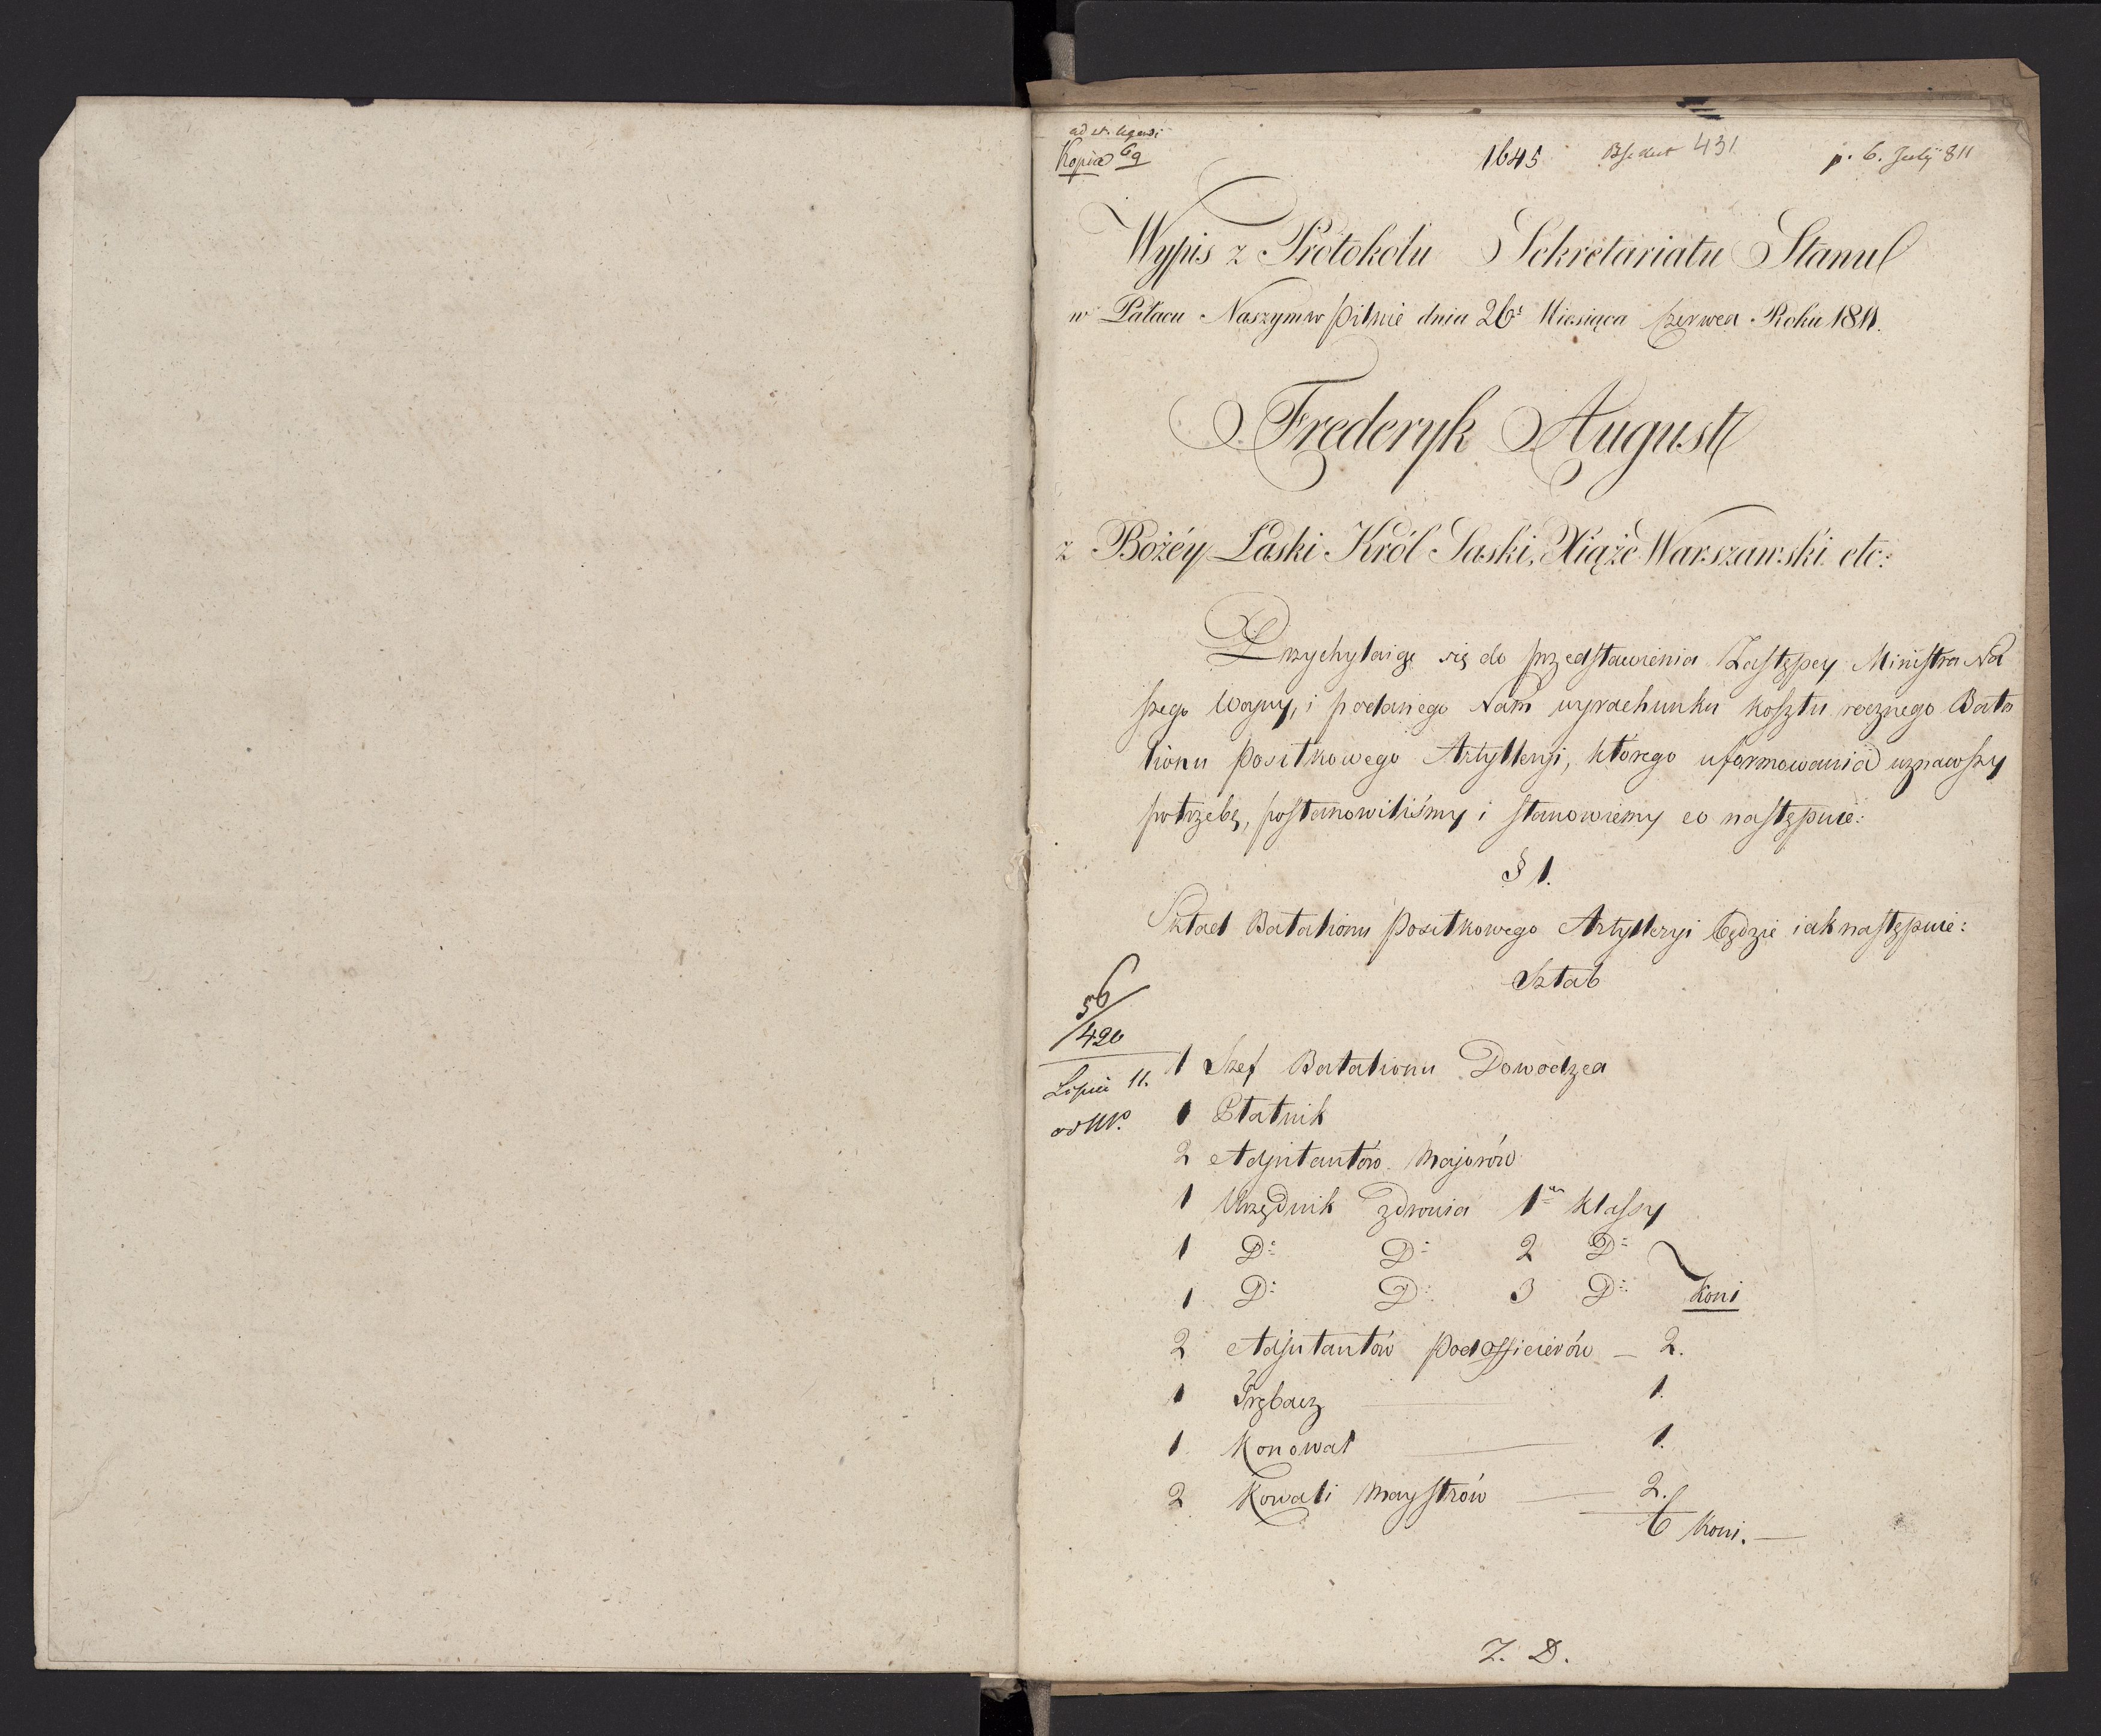 Kopia 69
1645 431 p. 6. July 811
Wypis z Protokołu Sekretariatu Stanu
w Pałacu Naszym w Pilnie dnia 26. Miesiąca Czerwca Roku 1811.
Frederyk August
z Bożéy Łaski Król Saski, Xiąże Warszawski etc:
Przychylaiąc się do przedstawienia Zastępcy Ministra Na
szego Woyny, i podanego Nam wyrachunku kosztu rocznego Bata
lionu Posiłkowego Artylleryi, którego uformowania uznawszy
potrzebę, postanowiliśmy i stanowiemy co następuie:
§ 1.
Skład Batalionu Posiłkowego Artylleryi będzie iak następuie:
Sztab
56/420
1 Szef Batalionu Dowodzca
Lipca 11.
1 Płatnik
2 Adjutantów Majorów
1 Urzędnik Zdrowia 1 klassy
1 D: D: 2 D:
1 D: D: 3 D: Koni
2 Adjutantów Podofficierów — 2.
1 Trębacz — 1.
1 Konował — 1.
2 Kowali Maystrów — 2.
6 Koni. —
Z. D.